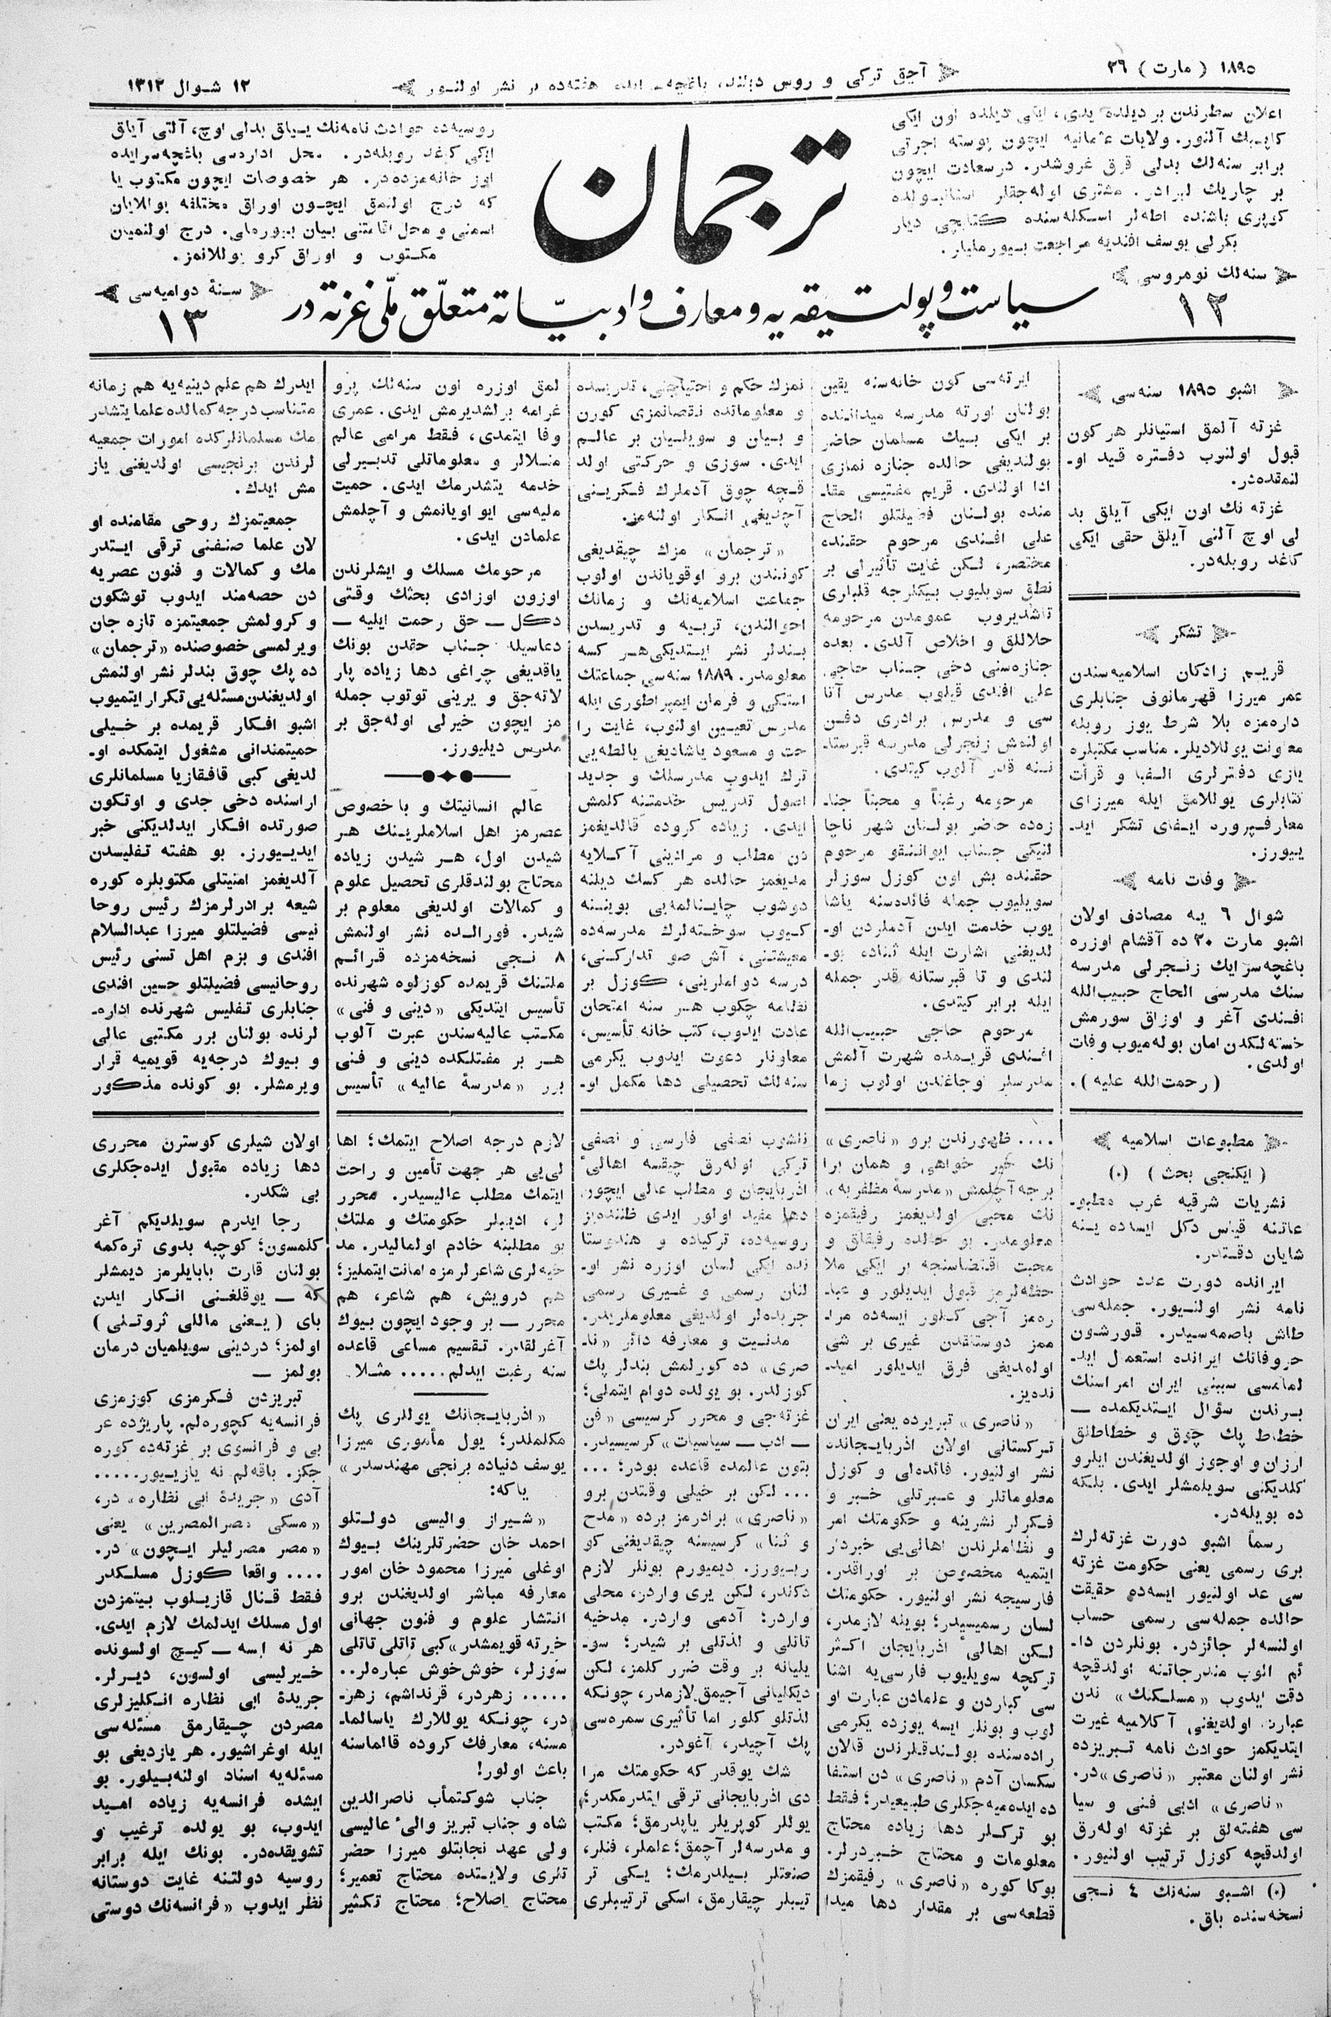 ١٨٩٥ ( مارت ) ٢٦
آچق تركی و روس دیلنده، باغچه‌سرایده هفته‌ده بر نشر اولنور
١٢ شوال ١٣١٢
اعلان سطرندن بر دیلده یدی، ایكی دیلده اون ایكی
كاپیك آلنور. ولایات عثمانیه ایچون پوسته اجرتی
برابر سنه‌لك بدلی قرق غروشدر. درسعادت ایچون
بر چاریك لیرادر. مشتری اوله‌جقلر استانبولده
كوپری باشنده اطه‌لر اسكله‌سنده كتابچی دیار
بكرلی یوسف افندیه مراجعت بیورملیلر.
سنه‌لك نومروسی
١٢
ترجمان
روسیه‌ده حوادث نامه‌نك ییللق بدلی اوچ، آلتی آیلق
ایكی كاغد روبله‌در. محل اداره‌سی باغچه‌سرایده
اوز خانه‌مزده‌در. هر خصوصات ایچون مكتوب یا
كه درج اولنمق ایچون اوراق مختلفه یوللایان
اسمنی و محل اقامتنی بیان بیورملی. درج اولنمیان
مكتوب و اوراق كرو یوللانمز.
سنهٔ دوامیه‌سی
١٣
سیاست و پولتیقه‌یه و معارف و ادبیاته متعلّق ملّی غزته در
اشبو ١٨٩٥ سنه‌سی
غزته آلمق استیانلر هر كون
قبول اولنوب دفتره قید او-
لنمقده‌در.
غزته نك اون ایكی آیلق بد
لی اوچ آلتی آیلق حقی ایكی
كاغد روبله‌در.
تشكر
قریم زادكان اسلامیه‌سندن
عمر میرزا قهرمانوف جنابلری
داره‌مزه بلا شرط یوز روبله
معاونت یوللادیلر. مناسب مكتبلره
یازی دفترلری الفبا و قرأت
كتابلری یوللامق ایله میرزای
معارفپروره ایفای تشكر اید-
ییورز.
وفات نامه
شوال ٦ یه مصادف اولان
اشبو مارت ٢٠ ده آقشام اوزره
باغچه‌سرایك زنجرلی مدرسه
سنك مدرسی الحاج حبیب‌الله
افندی آغر و اوزاق سورمش
خسته‌لكدن امان بوله‌میوب وفات
اولدی.
( رحمت‌الله علیه ).
ایرته‌سی كون خانه‌سنه یقین
بولنان اورته مدرسه میداننده
بر ایكی بیك مسلمان حاضر
بولندیغی حالده جنازه نمازی
ادا اولندی. قریم مفتیسی مقا-
منده بولنان فضیلتلو الحاج
علی افندی مرحوم حقنده
مختصر، لكن غایت تأثیرلی بر
نطق سویلیوب بیكلرجه قلبلری
تاشدیروب عمومدن مرحومه
حلاللق و اخلاص آلدی. بعده
جنازه‌سنی دخی جناب حاجی
علی افندی قیلوب مدرس آتا
سی و مدرس برادری دفن
اولنمش زنجرلی مدرسه قبرستا-
ننه قدر آلوب كیتدی.
مرحومه رغبتاً و محبتاً جنا-
زه‌ده حاضر بولنان شهر ناچا
لنیكی جناب ایواننقو مرحوم
حقنده بش اون كوزل سوزلر
سویلیوب جمله فائده‌سنه یاشا
یوب خدمت ایدن آدملردن او-
لدیغنی اشارت ایله ثناده بو-
لندی و تا قبرستانه قدر جمله
ایله برابر كیتدی.
مرحوم حاجی حبیب‌الله
افندی قریمده شهرت آلمش
مدرسلر اوجاغندن اولوب زما
نمزك حكم و احتیاجنی، تدریسده
و معلوماتده نقصانمزی كورن
و بیان و سویلیان بر عالم
ایدی. سوزی و حركتی اولد
قچه چوق آدملرك فكرینی
آچدیغی انكار اولنه‌مز.
«ترجمان» مزك چیقدیغی
كونندن برو اوقویاندن اولوب
جماعت اسلامیه‌نك و زمانك
احوالندن، تربیه و تدریسدن
بندلر نشر ایتدیكی هر كسه
معلومدر. ١٨٨٩ سنه‌سی جماعتك
استكی و فرمان ایمپراطوری ایله
مدرس تعیین اولنوب، غایت را
حت و مسعود یاشادیغی یالطه‌یی
ترك ایدوب مدرسلك و جدید
اصول تدریس خدمتنه كلمش
ایدی. زیاده كروده قالدیغمز
دن مطلب و مرادینی آكلایه
مدیغمز حالده هر كسك دیلنه
دوشوب چاینالمه‌یی بویننه
كیوب سوخته‌لرك مدرسه‌ده
معیشتنی، آش صو تداركنی،
درسه دواملرینی، كوزل بر
نظامه چكوب هر سنه امتحان
عادت ایدوب، كتب خانه تأسیس،
معاونلر دعوت ایدوب یكرمی
سنه‌لك تحصیلی دها مكمل او-
لمق اوزره اون سنه‌لك پرو
غرامه برلشدیرمش ایدی. عمری
وفا ایتمدی، فقط مرامی عالم
منلالر و معلوماتلی تدبیرلی
خدمه یتشدرمك ایدی. حمیت
ملیه‌سی ایو اویانمش و آچلمش
علمادن ایدی.
مرحومك مسلك و ایشلرندن
اوزون اوزادی بحثك وقتی
دكل — حق رحمت ایلیه —
دعاسیله جناب حقدن بونك
یاقدیغی چراغی دها زیاده پار
لاته‌جق و یرینی توتوب جمله
مز ایچون خیرلی اوله‌جق بر
مدرس دیلیورز.
عالم انسانیتك و باخصوص
عصرمز اهل اسلاملرینك هر
شیدن اول، هر شیدن زیاده
محتاج بولندقلری تحصیل علوم
و كمالات اولدیغی معلوم بر
شیدر. فورالده نشر اولنمش
٨ نجی نسخه‌مزده قرائم
ملتنك قریمده كوزلوه شهرنده
تأسیس ایتدیكی «دینی و فنی»
مكتب عالیه‌سندن عبرت آلوب
هر بر مفتیلكده دینی و فنی
برر «مدرسهٔ عالیه» تأسیس
ایدرك هم علم دینیه‌یه هم زمانه
متناسب درجه كمالده علما یتشدر
مك مسلمانلركده امورات جمعیه
لرندن برنجیسی اولدیغنی یاز
مش ایدك.
جمعیتمزك روحی مقامنده او
لان علما صنفنی ترقی ایتدر
مك و كمالات و فنون عصریه
دن حصه‌مند ایدوب توشكون
و كرولمش جمعیتمزه تازه جان
ویرلمسی خصوصنده «ترجمان»
ده پك چوق بندلر نشر اولنمش
اولدیغندن مسئله‌یی تكرار ایتمیوب
اشبو افكار قریمده بر خیلی
حمیتمندانی مشغول ایتمكده او-
لدیغی كبی قافقازیا مسلمانلری
اراسنده دخی جدی و اوتكون
صورتده افكار ایدلدیكنی خبر
ایدییورز. بو هفته تفلیسدن
آلدیغمز امنیتلی مكتوبلره كوره
شیعه برادرلرمزك رئیس روحا
نیسی فضیلتلو میرزا عبدالسلام
افندی و بزم اهل تسنی رئیس
روحانیسی فضیلتلو حسین افندی
جنابلری تفلیس شهرنده اداره-
لرنده بولنان برر مكتبی عالی
و بیوك درجه‌یه قویمیه قرار
ویرمشلر. بو كونده مذكور
مطبوعات اسلامیه
( ایكنجی بحث ) (٠)
نشریات شرقیه غرب مطبو-
عاتنه قیاس دكل ایسه‌ده ینه
شایان دقتدر.
ایرانده دورت عدد حوادث
نامه نشر اولنیور. جمله‌سی
طاش باصمه‌سیدر. قورشون
حروفاتك ایرانده استعمال اید-
لمامسی سببنی ایران امراسنك
برندن سؤال ایتدیكمده —
خطاط پك چوق و خطاطلق
ارزان و اوجوز اولدیغندن ایلرو
كلدیكنی سویلمشلر ایدی. بلكه
ده بویله‌در.
رسماً اشبو دورت غزته‌لرك
بری رسمی یعنی حكومت غزته
سی عد اولنیور ایسه‌ده حقیقت
حالده جمله‌سی رسمی حساب
اولنسه‌لر جائزدر. بونلردن دا-
ئم الوب مندرجاتنه اولدقچه
دقت ایدوب «مسلكنك» ندن
عبارت اولدیغنی آكلامیه غیرت
ایتدیكمز حوادث نامه تبریزده
نشر اولنان معتبر «ناصری»در.
«ناصری» ادبی فنی و سیا
سی هفته‌لق بر غزته اوله‌رق
اولدقچه كوزل ترتیب اولنیور.
(٠) اشبو سنه‌نك ٤ نجی
نسخه‌سنده باق.
.... ظهورندن برو «ناصری»
نك خیر خواهی و همان برا
برجه آچلمش «مدرسهٔ مظفریه»
نك محبی اولدیغمز رفیقمزه
معلومدر. بو حالده رفیقلق و
محبت اقتضاسنجه بر ایكی ملا
حظه‌لرمز قبول ایدیلور و عبا-
ره‌مز آجی كلور ایسه‌ده مرا-
ممز دوستلقدن غیری بر شی
اولمدیغی فرق ایدیلور امید-
نده‌یز.
«ناصری» تبریزده یعنی ایران
تركستانی اولان اذربایجانده
نشر اولنیور. فائده‌لی و كوزل
معلوماتلر و عبرتلی خبر و
فكرلر نشرینه و حكومتك امر
و نظاملرندن اهالی‌یی خبردار
ایتمیه مخصوص بر اوراقدر.
فارسیجه نشر اولنیور. حكومتك
لسان رسمیسیدر؛ بوینه لازمدر،
لكن اهالیٔ اذربایجان اكثر
تركچه سویلیوب فارسی‌یه اشنا
سی كباردن و علمادن عبارت او
لوب و بونلر ایسه یوزده یكرمی
راده‌سنده بولندقلرندن قالان
سكسان آدم «ناصری» دن استفا
ده ایده‌میه‌جكلری طبیعیدر؛ فقط
بو تركلر دها زیاده محتاج
معلومات و محتاج خبردرلر.
بوكا كوره «ناصری» رفیقمزك
قطعه‌سی بر مقدار دها میدا
نلشوب نصفی فارسی و نصفی
تركی اوله‌رق چیقسه اهالیٔ
اذربایجان و مطلب عالی ایچون
دها مفید اولور ایدی ظننده‌یز
روسیه‌ده، تركیاده و هندوستا
نده ایكی لسان اوزره نشر او-
لنان رسمی و غیری رسمی
جریده‌لر اولدیغی معلوملریدر.
مدنیت و معارفه دائر «نا-
صری» ده كورلمش بندلر پك
كوزلدر. بو یولده دوام ایتملی؛
غزته‌جی و محرر كرسیسی «فن
— ادب — سیاسیات» كرسیسیدر.
بتون عالمده قاعده بودر؛ ...
... لكن بر خیلی وقتدن برو
«ناصری» برادرمز برده «مدح
و ثنا» كرسیسنه چیقدیغنی كو
ریورز. دیمیورم بونلر لازم
دكلدر، لكن یری واردر، محلی
واردر؛ آدمی واردر. مدحیه
تاتلی و لذتلی بر شیدر؛ سو-
یلیانه بر وقت ضرر كلمز، لكن
دیكلیانی آجیمق لازمدر، چونكه
لذتلو كلور اما تأثیری سمره‌سی
پك آچیدر، آغودر.
شك یوقدر كه حكومتك مرا
دی اذربایجانی ترقی ایتدرمكدر؛
یوللر كوپریلر یاپدرمق؛ مكتب
و مدرسه‌لر آچمق؛ علملر، فنلر،
صنعتلر بیلدرمك؛ یكی تر
تیبلر چیقارمق، اسكی ترتیبلری
لازم درجه اصلاح ایتمك؛ اها
لی‌یی هر جهت تأمین و راحت
ایتمك مطلب عالیسیدر. محرر
لر، ادیبلر حكومتك و ملتك
بو مطلبنه خادم اولمالیدر. مد
حیه‌لری شاعرلرمزه امانت ایتملیز؛
هم درویش، هم شاعر، هم
محرر — بر وجود ایچون بیوك
آغرلقدر. تقسیم مساعی قاعده
سنه رغبت ایدلم..... مثلا
«اذربایجانك یوللری پك
مكملدر؛ یول مأموری میرزا
یوسف دنیاده برنجی مهندسدر»
یاكه:
«شیراز والیسی دولتلو
احمد خان حضرتلرینك بیوك
اوغلی میرزا محمود خان امور
معارفه مباشر اولدیغندن برو
انتشار علوم و فنون جهانی
خیرته قویمشدر» كبی تاتلی تاتلی
سوزلر، خوش خوش عباره‌لر..
..... زهردر، قرنداشم، زهر-
در، چونكه یوللارك یاسالما-
مسنه، معارفك كروده قالماسنه
باعث اولور!
جناب شوكتمأب ناصرالدین
شاه و جناب تبریز والیٔ عالیسی
ولی عهد نجابتلو میرزا حضر
تلری ولایتده محتاج تعمیر؛
محتاج اصلاح؛ محتاج تكثیر
اولان شیلری كوسترن محرری
دها زیاده مقبول ایده‌جكلری
بی شكدر.
رجا ایدرم سویلدیكم آغر
كلمسون؛ كوچبه بدوی تره‌كمه
بولنان قارت بابایلرمز دیمشلر
كه — یوقلغنی انكار ایدن
بای ( یعنی ماللی ثروتلی )
اولمز؛ دردینی سویلمیان درمان
بولمز —
تبریزدن فكرمزی كوزمزی
فرانسه‌یه كچوره‌لم. پاریژده عر
بی و فرانسوی بر غزته‌ده كوره
جكز. باقه‌لم نه یازییور.....
آدی «جریدهٔ ابی نظاره» در،
«مسكی مصر المصرین» یعنی
«مصر مصرلیلر ایچون» در.
.... واقعا كوزل مسلكدر
فقط قنال قازیلوب بیتمزدن
اول مسلك ایدلمك لازم ایدی.
هر نه ایسه — كیچ اولسونده
خیرلیسی اولسون، دیرلر.
جریدهٔ ابی نظاره انكلیزلری
مصردن چیقارمق مسئله‌سی
ایله اوغراشیور. هر یازدیغی بو
مسئله‌یه اسناد اولنه‌بیلور. بو
ایشده فرانسه‌یه زیاده امید
ایدوب، بو یولده ترغیب و
تشویقده‌در. بونك ایله برابر
روسیه دولتنه غایت دوستانه
نظر ایدوب «فرانسه‌نك دوستی